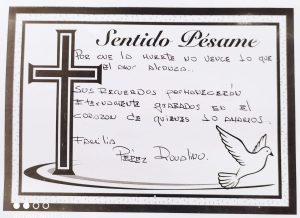 Sentido Pésame
POR QUE LA MUERTE NO VENCE LO QUE
EL AMOR ALCANZA...
SUS RECUERDOS PERMANECERÁN
ETERNAMENTE GRABADOS EN EL
CORAZON DE QUIENES LO AMAMOS.
FAMILIA
PÉREZ